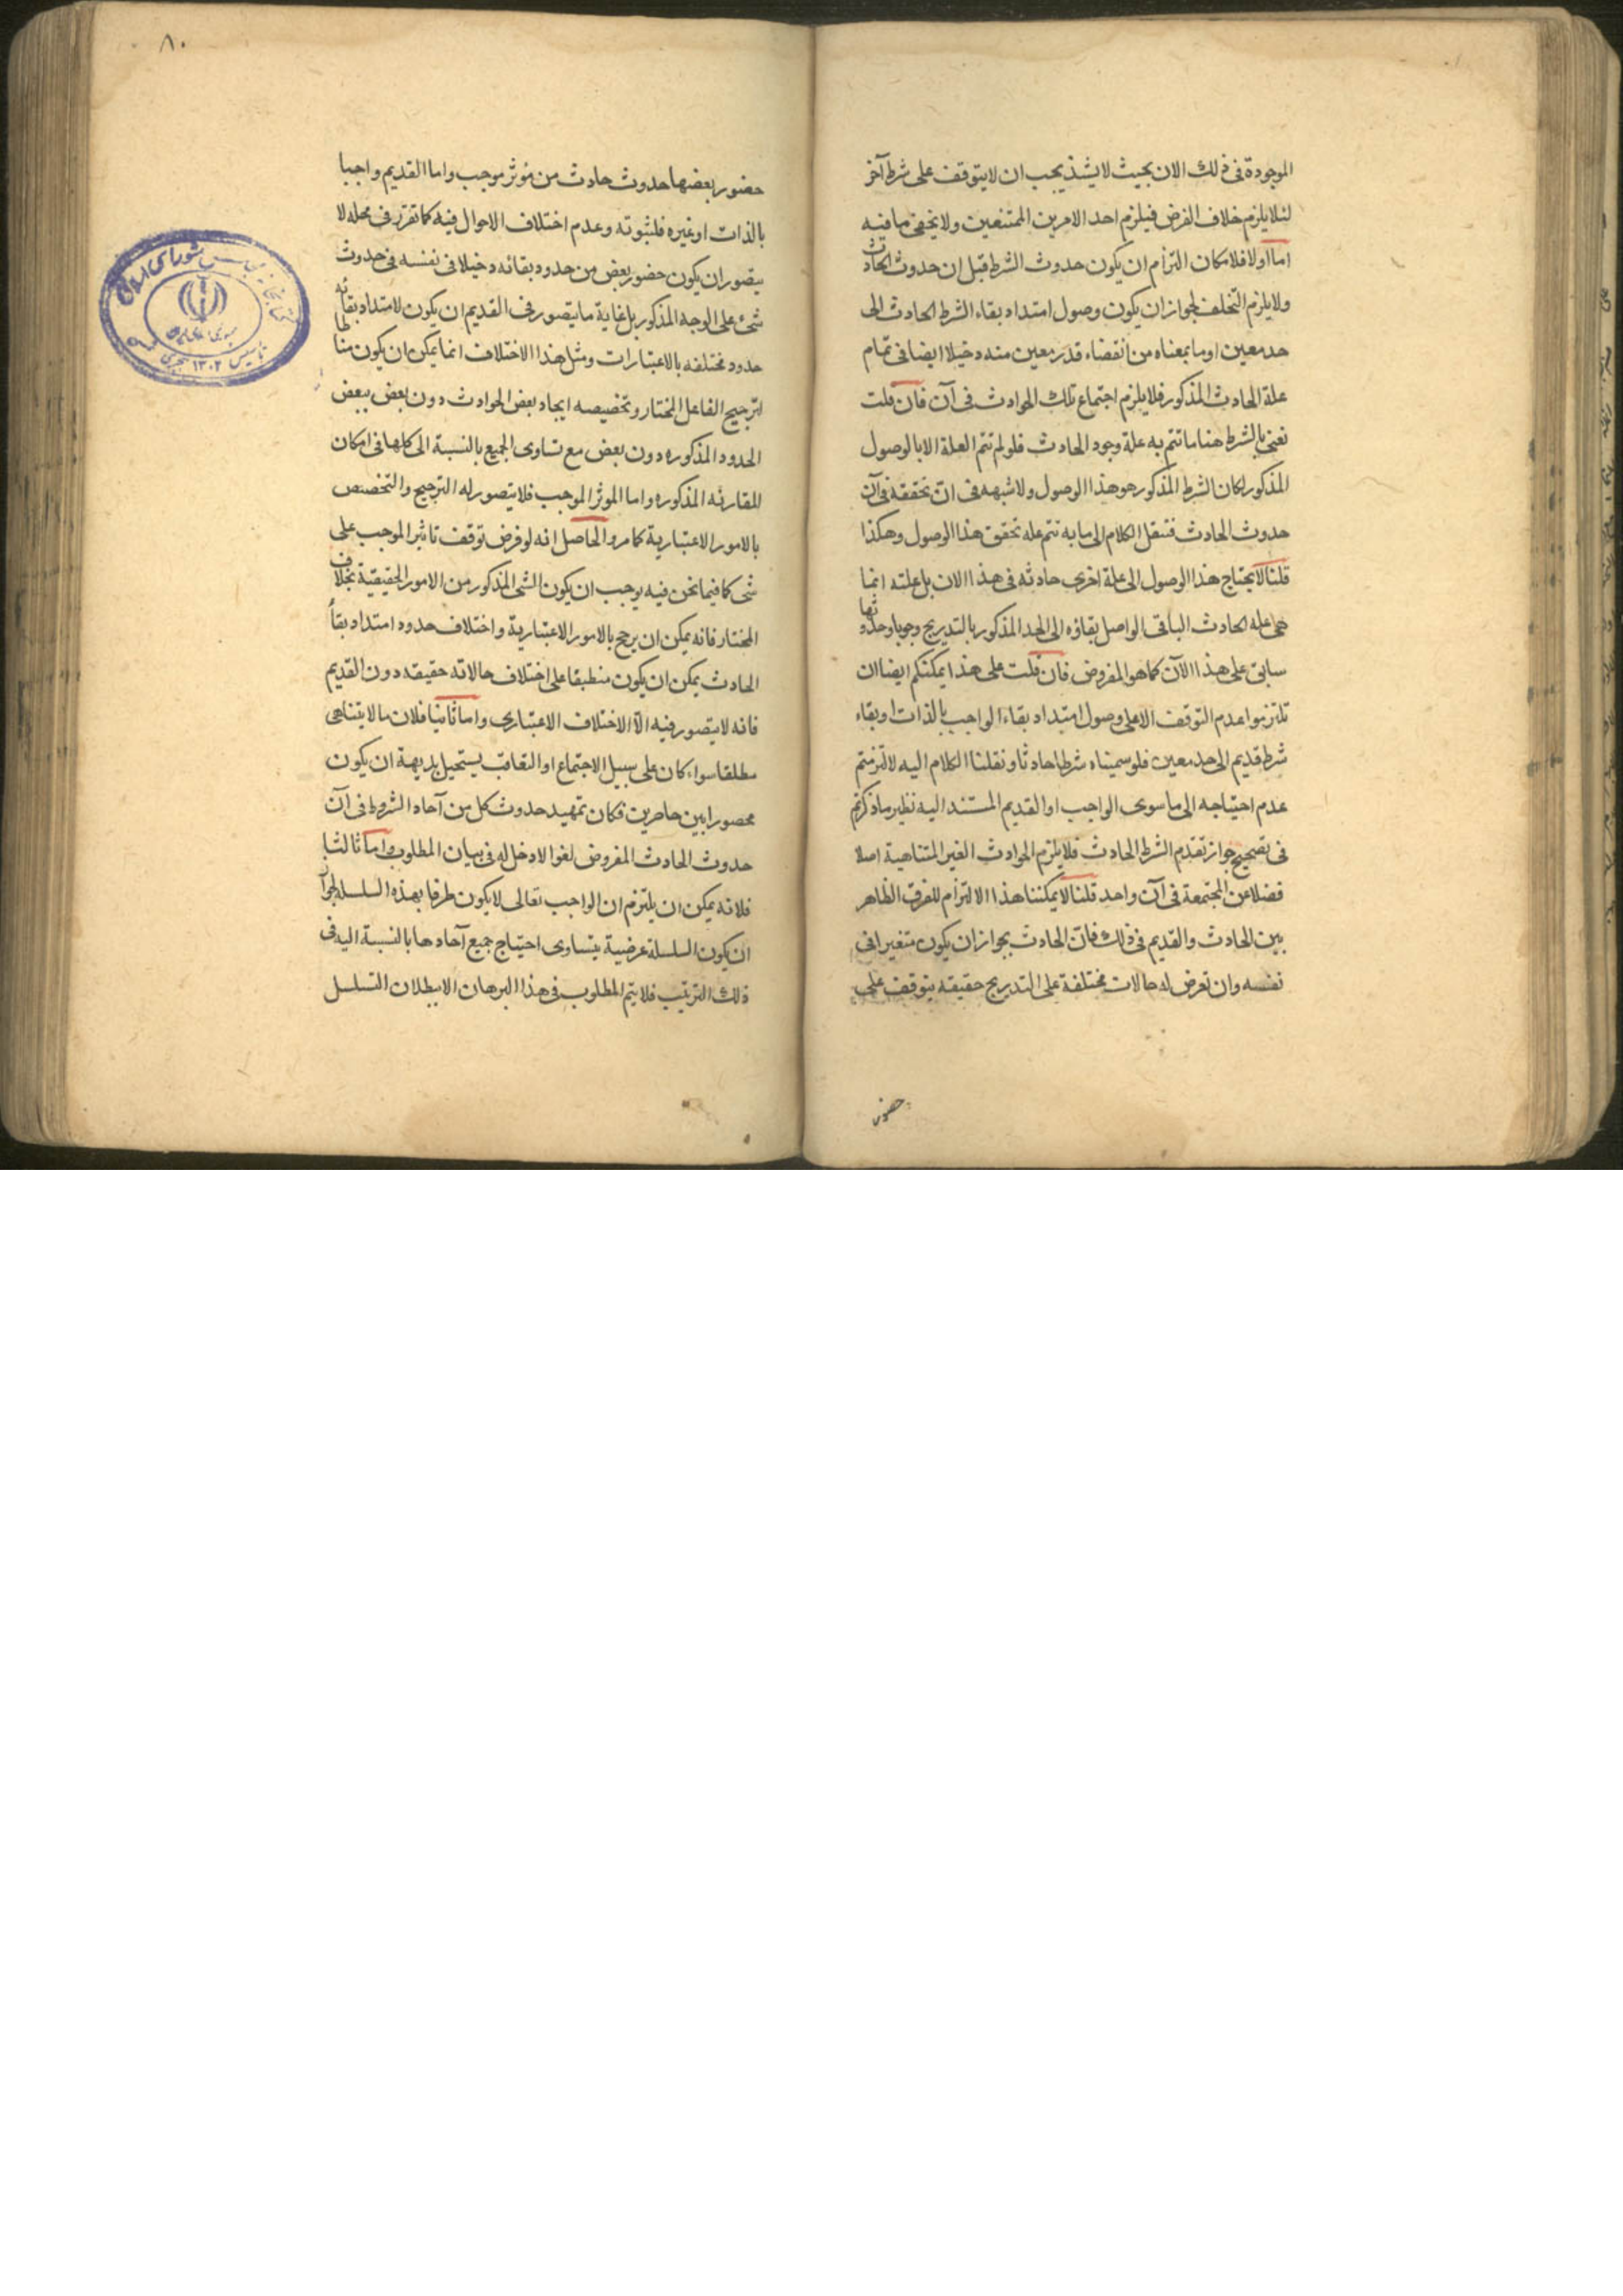 الموجودة فى ذلك الان بحيث لا يشذ يجب ان لا يتوقف على شرط آخر
لئلا يلزم خلاف الفرض فيلزم احد الامرين الممتنعين ولا يخفى ما فيه
اما اولا فلامكان التزام ان يكون حدوث الشرط قبل ان حدوث الحادث
ولا يلزم التخلف لجواز ان يكون وصول امتداد بقاء الشرط الحادث الى
حد معين او ما بمعناه من انقضاء قدر معين منه دخيلا ايضا فى تمام
علة الحادث المذكور فلا يلزم اجتماع تلك الحوادث فى آن فان قلت
نعنى بالشرط هنا ما تتم به علة وجود الحادث فلو لم تتم العلة الا بالوصول
المذكور لكان الشرط المذكور هو هذا الوصول ولا شبهه فى ان تحققه فى آن
حدوث الحادث فننقل الكلام الى ما به تتم عله تحقق هذا الوصول وهكذا
قلنا لا يحتاج هذا الوصول الى علة اخرى حادثه فى هذا الان بل علته انما
هى عله الحادث الباقى الواصل بقاؤه الى الحد المذكور بالتدريج وجوبا وحدوثها
سابق على هذا الآن كما هو المفروض فان قلت على هذا يمكنكم ايضا ان
تلتزموا عدم التوقف الا على وصول امتداد بقاء الواجب بالذات او بقاء
شرط قديم الى حد معين فلو سميناه شرطا حادثا ونقلنا الكلام اليه لالتزمتم
عدم احتياجه الى ما سوى الواجب او القديم المستند اليه نظير ما ذكرتم
فى تصحيح جواز تقدم الشرط الحادث فلا يلزم الحوادث الغير المتناهية اصلا
فضلا عن المجتمعة فى آن واحد قلنا لا يمكننا هذا الالتزام للفرق الظاهر
بين الحادث والقديم فى ذلك فان الحادث يجوز ان يكون متغيرا فى
نفسه وان تعرض له حالات مختلفة على التدريج حقيقه يتوقف على
حضور
٨٠
حضور بعضها حدوث حادث من مؤثر موجب واما القديم واجبا
بالذات او غيره فلثبوته وعدم اختلاف الاحوال فيه كما تقرر فى محله لا
يتصور ان يكون حضور بعض من حدود بقائه دخيلا فى نفسه فى حدوث
شئ على الوجه المذكور بل غاية ما يتصور فى القديم ان يكون لامتداد بقائه
حدود مختلفه بالاعتبارات ومثل هذا الاختلاف انما يمكن ان يكون مناطا
لترجيح الفاعل المختار وتخصيصه ايجاد بعض الحوادث دون بعض ببعض
الحدود المذكوره دون بعض مع تساوى الجميع بالنسبة الى كلها فى امكان
المقارنه المذكوره واما الموثر الموجب فلا يتصور له الترجيح والتخصيص
بالامور الاعتبارية كما مر والحاصل انه لو فرض توقف تاثير الموجب على
شى كما فيما نحن فيه يوجب ان يكون الشى المذكور من الامور الحقيقية بخلاف
المختار فانه يمكن ان يرجح بالامور الاعتبارية واختلاف حدود امتداد بقاء
الحادث يمكن ان يكون منطبقا على اختلاف حالاته حقيقه دون القديم
فانه لا يتصور فيه الا الاختلاف الاعتبارى واما ثانيا فلان ما لا يتناهى
مطلقا سواء كان على سبيل الاجتماع او التعاقب يستحيل بديهة ان يكون
محصورا بين حاصرين فكان تمهيد حدوث كل من آحاد الشروط فى آن
حدوث الحادث المفروض لغوا لا دخل له فى بيان المطلوب واما ثالثا
فلانه يمكن ان يلتزم ان الواجب تعالى لا يكون طرفا بهذه السلسله لجواز
ان يكون السلسلة عرضية يتساوى احتياج جميع آحادها بالنسبة اليه فى
ذلك الترتيب فلا يتم المطلوب فى هذا البرهان الا ببطلان التسلسل
شوراى
١٣٠٢